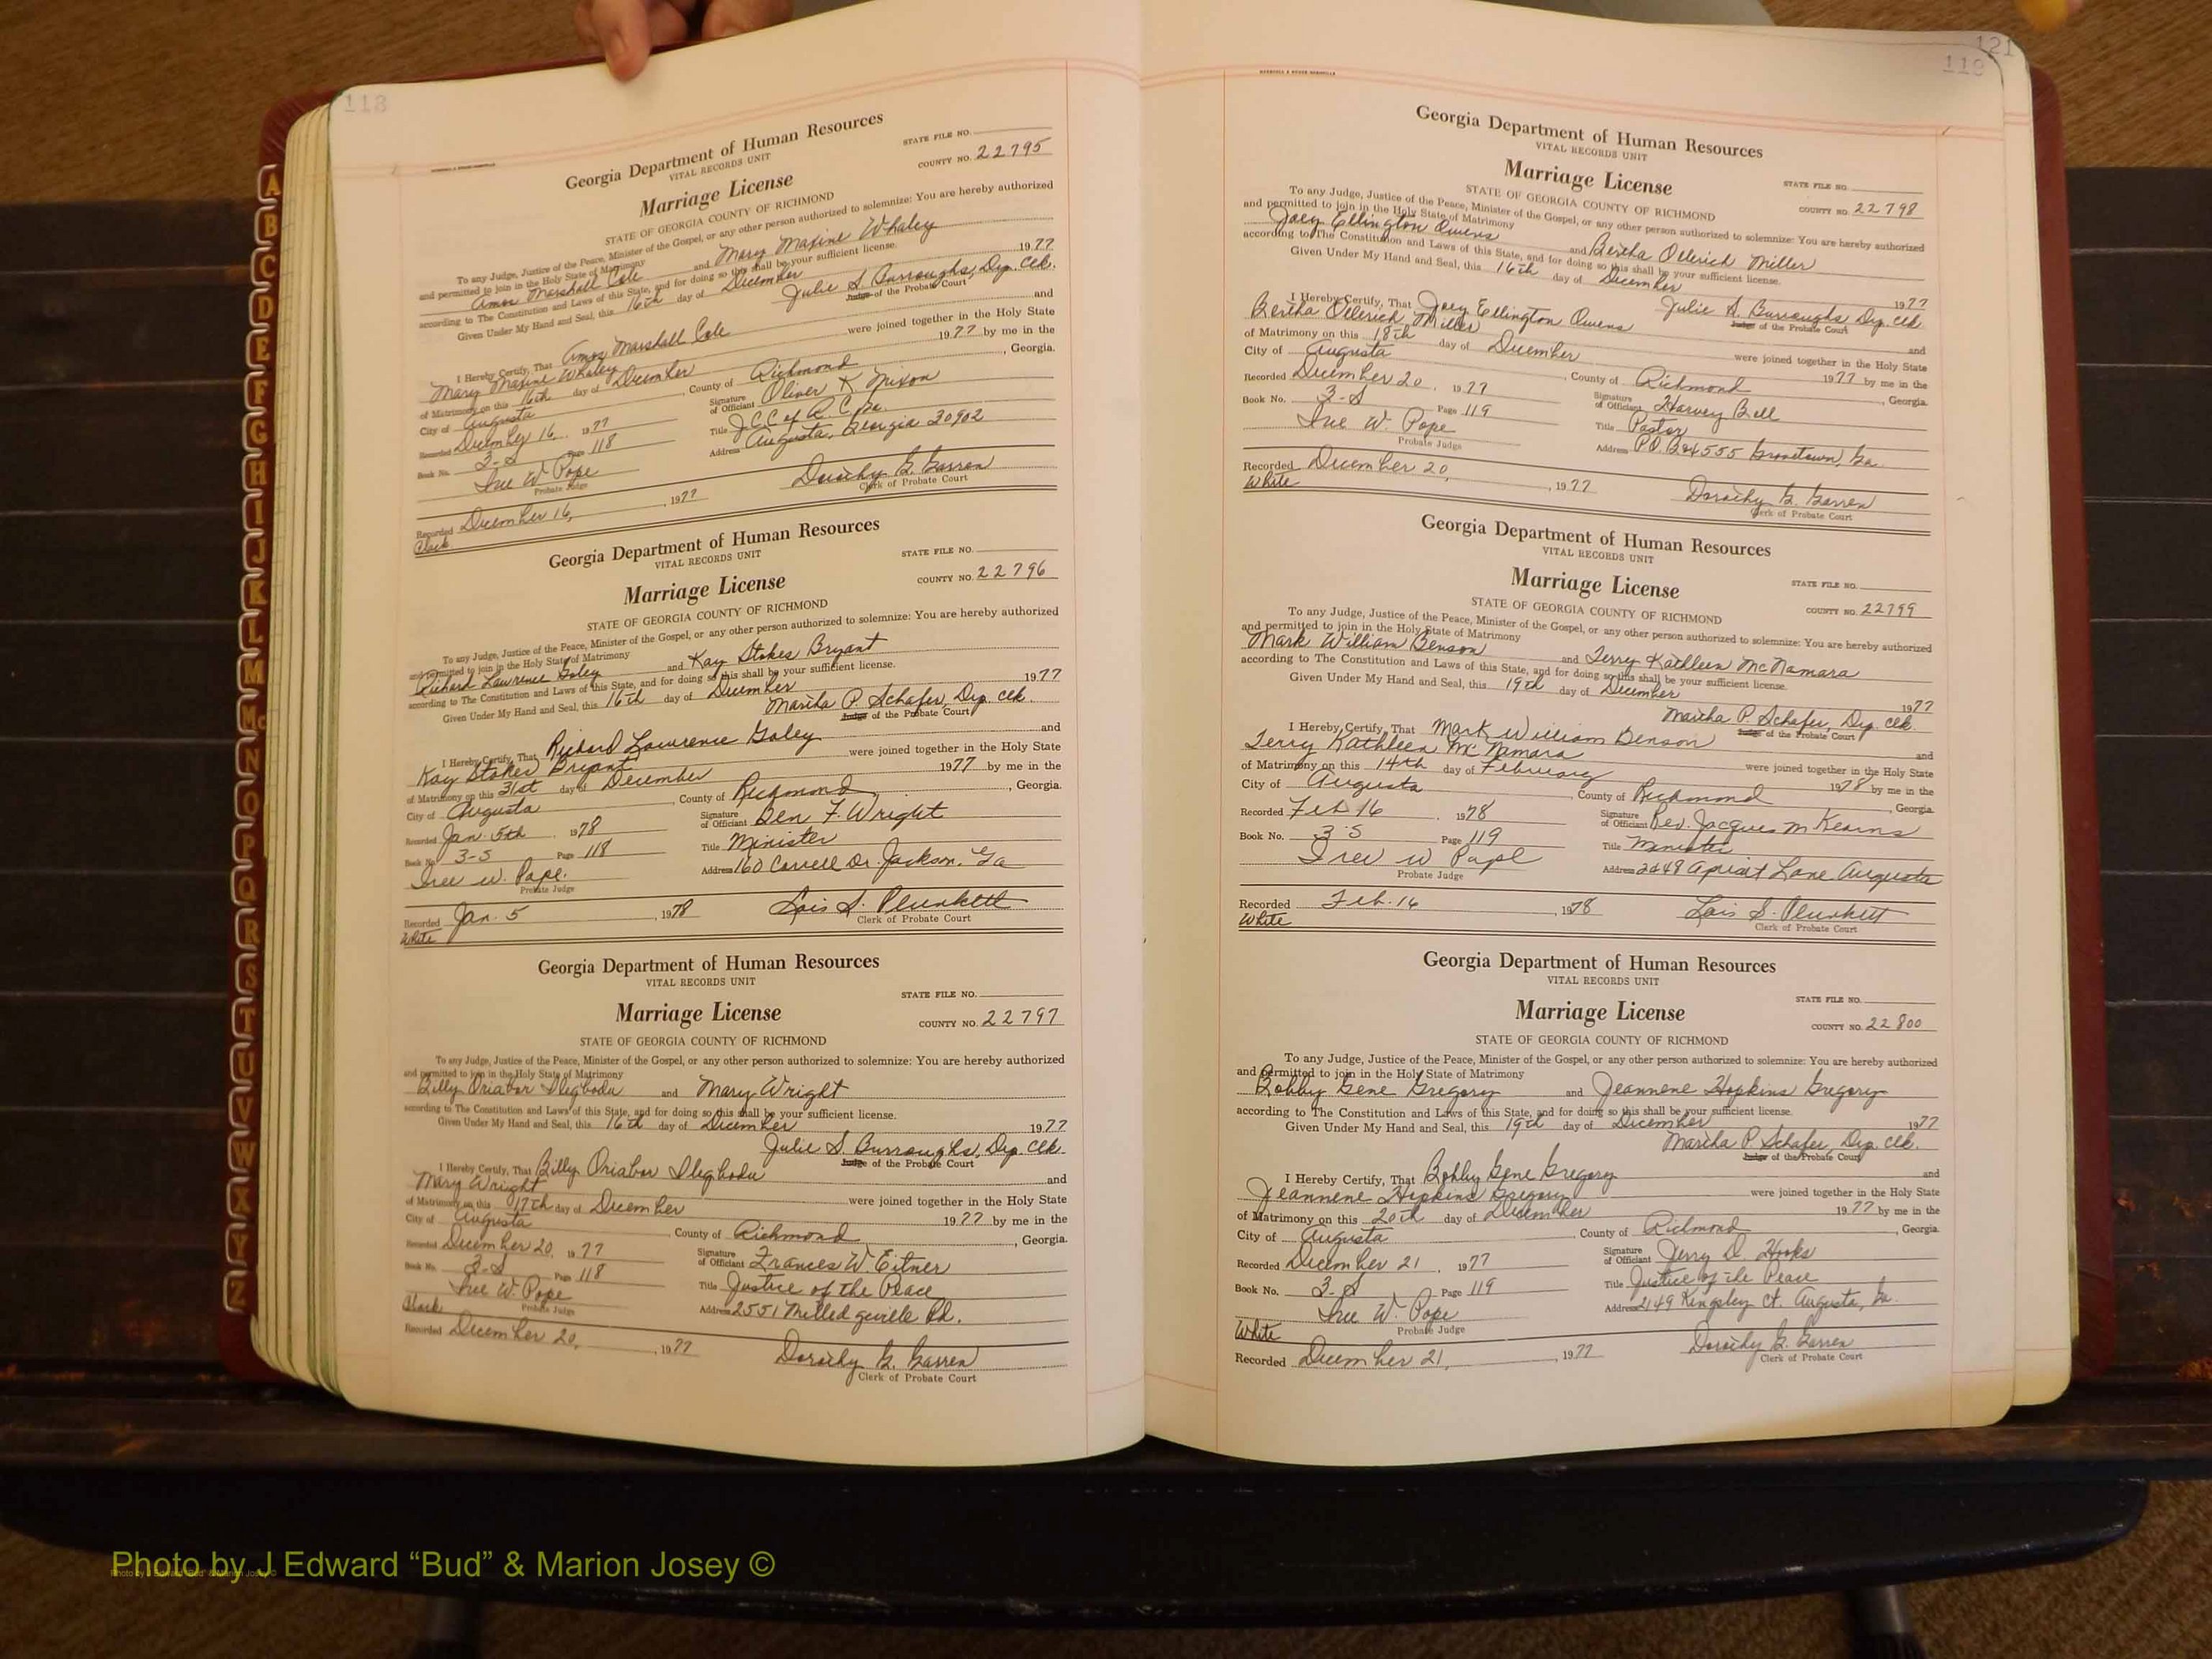 118
Georgia Department of Human Resources
VITAL RECORDS UNIT
STATE FILE NO.
Marriage License
COUNTY NO. 22795
STATE OF GEORGIA COUNTY OF RICHMOND
To any Judge, Justice of the Peace, Minister of the Gospel, or any other person authorized to solemnize: You are hereby authorized
and permitted to join in the Holy State of Matrimony
Amos Marshall Cole and Mary Maxine Whaley
according to The Constitution and Laws of this State, and for doing so this shall be your sufficient license.
Given Under My Hand and Seal, this 16th day of December 1977
Julie S Burroughs, Dep. Clk.
Judge of the Probate Court
I Hereby Certify, That Amos Marshall Cole and
Mary Maxine Whaley were joined together in the Holy State
of Matrimony on this 16th day of December 1977 by me in the
City of Augusta, County of Richmond, Georgia.
Recorded December 16 1977 Signature of Officiant Oliver K Nixon
Book No. 3-S Page 118 Title J.C.C of R.C. Ga.
Iree W Pope Address Augusta, Georgia 30902
Probate Judge
Dorothy G. Garren
Recorded December 16, 1977 Clerk of Probate Court
Georgia Department of Human Resources
VITAL RECORDS UNIT
STATE FILE NO.
Marriage License
COUNTY NO. 22796
STATE OF GEORGIA COUNTY OF RICHMOND
To any Judge, Justice of the Peace, Minister of the Gospel, or any other person authorized to solemnize: You are hereby authorized
and permitted to join in the Holy State of Matrimony
Richard Lawrence Goley and Kay Stokes Bryant
according to The Constitution and Laws of this State, and for doing so this shall be your sufficient license.
Given Under My Hand and Seal, this 16th day of December 1977
Martha P. Schafer, Dep. Clk.
Judge of the Probate Court
I Hereby Certify, That Richard Lawrence Goley and
Kay Stokes Bryant were joined together in the Holy State
of Matrimony on this 31st day of December 1977 by me in the
City of Augusta, County of Richmond, Georgia.
Recorded Jan. 5th 1978 Signature of Officiant Ben F. Wright
Book No. 3-S Page 118 Title Minister
Iree W. Pope. Address 160 Dr. Jackson, Ga
Probate Judge
Recorded Jan. 5, 1978 Lois S. Plunkett
White Clerk of Probate Court
Georgia Department of Human Resources
VITAL RECORDS UNIT
STATE FILE NO.
Marriage License
COUNTY NO. 22797
STATE OF GEORGIA COUNTY OF RICHMOND
To any Judge, Justice of the Peace, Minister of the Gospel, or any other person authorized to solemnize: You are hereby authorized
and permitted to join in the Holy State of Matrimony
Billy Oriabor Ilegbodu and Mary Wright
according to The Constitution and Laws of this State, and for doing so this shall be your sufficient license.
Given Under My Hand and Seal, this 16th day of December 1977
Julie S. Burroughs, Dep. Clk.
Judge of the Probate Court
I Hereby Certify, That Billy Oriabor Ilegbodu and
Mary Wright were joined together in the Holy State
of Matrimony on this 17th day of December 1977 by me in the
City of Augusta, County of Richmond, Georgia.
Recorded December 20, 1977 Signature of Officiant Frances W. Eitner
Book No. 3-S Page 118 Title Justice of the Peace
Iree W. Pope Address 2551 Milledgeville Rd.
Black Probate Judge
Recorded December 20, 1977 Dorothy G. Garren
Clerk of Probate Court
121
119
Georgia Department of Human Resources
VITAL RECORDS UNIT
Marriage License
STATE FILE NO.
STATE OF GEORGIA COUNTY OF RICHMOND
COUNTY NO. 22798
To any Judge, Justice of the Peace, Minister of the Gospel, or any other person authorized to solemnize: You are hereby authorized
and permitted to join in the Holy State of Matrimony
Joey Ellington Owens and Bertha Ollerich Miller
according to The Constitution and Laws of this State, and for doing so this shall be your sufficient license.
Given Under My Hand and Seal, this 16th day of December 1977
Julie S. Burroughs Dep. Clk
Judge of the Probate Court
I Hereby Certify, That Joey Ellington Owens and
Bertha Ollerich Miller were joined together in the Holy State
of Matrimony on this 18th day of December 1977 by me in the
City of Augusta, County of Richmond, Georgia.
Recorded December 20, 1977 Signature of Officiant Harvey Bell
Book No. 3-S Page 119 Title Pastor
Iree W. Pope Address P.O. Box 555 Grovetown, Ga.
Probate Judge
Recorded December 20, 1977 Dorothy G. Garren
White Clerk of Probate Court
Georgia Department of Human Resources
VITAL RECORDS UNIT
Marriage License
STATE FILE NO.
STATE OF GEORGIA COUNTY OF RICHMOND
COUNTY NO. 22799
To any Judge, Justice of the Peace, Minister of the Gospel, or any other person authorized to solemnize: You are hereby authorized
and permitted to join in the Holy State of Matrimony
Mark William Benson and Terry Kathleen McNamara
according to The Constitution and Laws of this State, and for doing so this shall be your sufficient license.
Given Under My Hand and Seal, this 19th day of December 1977
Martha P. Schafer, Dep. Clk.
Judge of the Probate Court
I Hereby Certify, That Mark William Benson and
Terry Kathleen McNamara were joined together in the Holy State
of Matrimony on this 14th day of February 1978 by me in the
City of Augusta, County of Richmond, Georgia.
Recorded Feb 16 1978 Signature of Officiant Rev. Jacques M Kearns
Book No. 3 S Page 119 Title Minister
Iree W Pope Address 2248 Lane Augusta
Probate Judge
Recorded Feb. 16, 1978 Lois S. Plunkett
White Clerk of Probate Court
Georgia Department of Human Resources
VITAL RECORDS UNIT
STATE FILE NO.
Marriage License
COUNTY NO. 22800
STATE OF GEORGIA COUNTY OF RICHMOND
To any Judge, Justice of the Peace, Minister of the Gospel, or any other person authorized to solemnize: You are hereby authorized
and permitted to join in the Holy State of Matrimony
Bobby Gene Gregory and Jeannene Hopkins Gregory
according to The Constitution and Laws of this State, and for doing so this shall be your sufficient license.
Given Under My Hand and Seal, this 19th day of December 1977
Martha P. Schafer, Dep. Clk.
Judge of the Probate Court
I Hereby Certify, That Bobby Gene Gregory and
Jeannene Hopkins Gregory were joined together in the Holy State
of Matrimony on this 20th day of December 1977 by me in the
City of Augusta, County of Richmond, Georgia.
Recorded December 21, 1977 Signature of Officiant Jerry D. Hooks
Book No. 3-S Page 119 Title Justice of the Peace
Iree W. Pope Address 2149 Kingsley Ct. Augusta, Ga.
White Probate Judge
Recorded December 21, 1977 Dorothy G. Garren
Clerk of Probate Court
A
B
C
D
E
F
G
H
I
J
K
L
M
Mc
N
O
P
Q
R
S
T
U
V
W
X
Y
Z
Photo by J Edward “Bud” & Marion Josey ©
Photo by J Edward "Bud" & Marion Josey ©